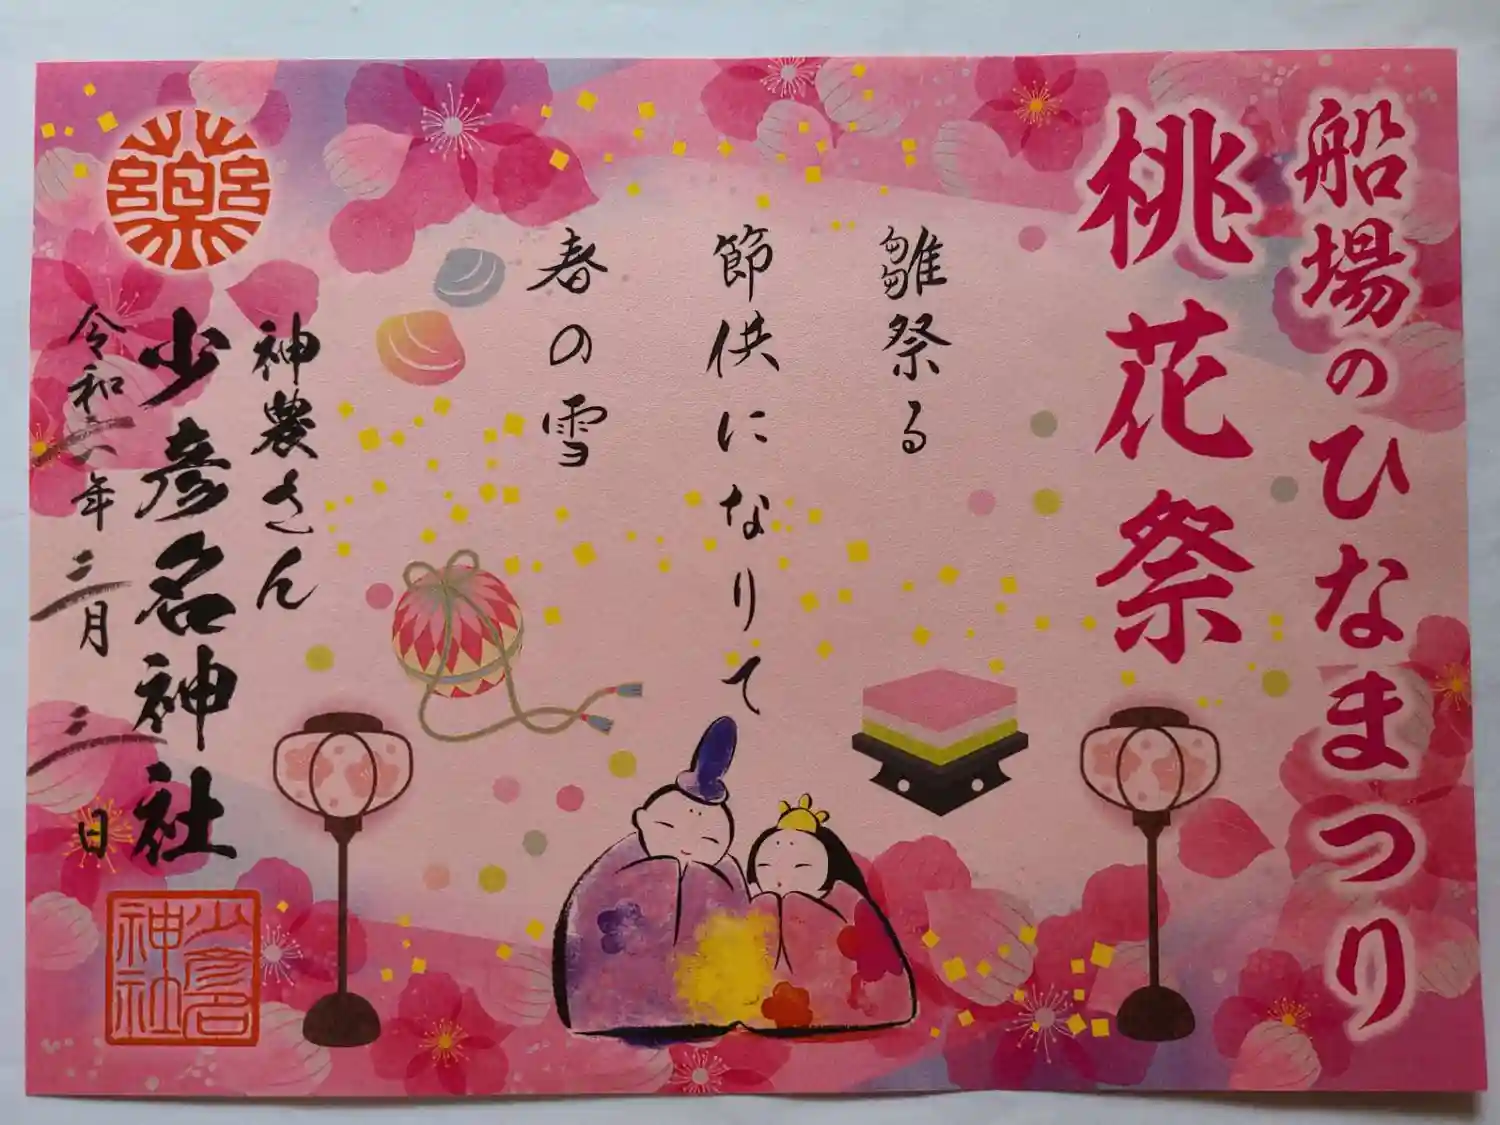 船場のひなまつり
桃花祭
雛祭る
節供になりて
春の雪
神農さん
少彦名神社
令和六年三月三日
薬
少彦名
神社